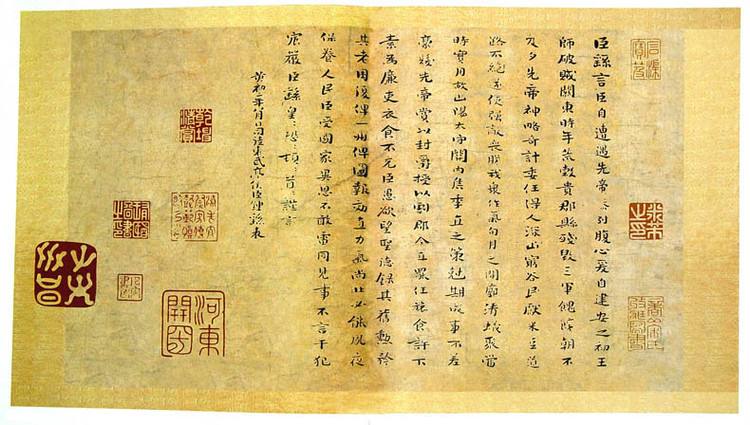 臣繇言臣自遭遇先帝忝列腹心爰自建安之初王
師破賊關東時年荒穀貴郡縣殘毀三軍餽饟朝不
及夕先帝神略奇計委任得人深山窮谷民獻米豆道
路不絕遂使強敵喪膽我衆作氣旬月之間廓清蟻聚當
時實用故山陽太守關內侯季直之策剋期成事不差
豪髮先帝賞以封爵授以劇郡今直罷任旅食許下
素為廉吏衣食不充臣愚欲望聖德錄其舊勳矜
其老困復俾一州俾圖報效直力氣尚壯必能夙夜
保養人民臣受國家異恩不敢雷同見事不言干犯
宸嚴臣繇皇〻恐〻頓〻首〻謹言
黃初二年八月日司徒東武亭侯臣鍾繇表
河東